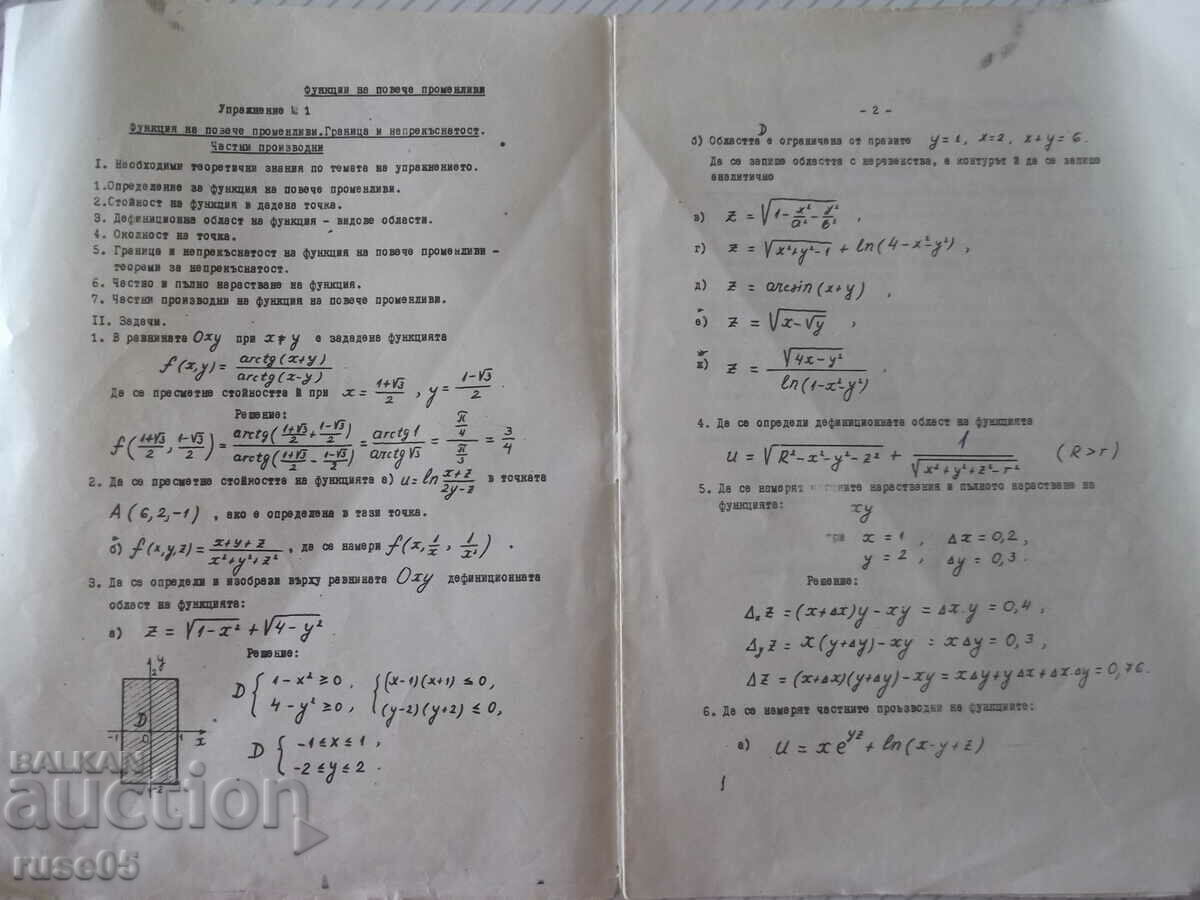 Функции на повече променливи
Упражнение № 1
Функция на повече променливи. Граница и непрекъснатост.
Частни производни
I. Необходими теоретични знания по темата на упражнението.
1. Определение за функция на повече променливи.
2. Стойност на функция в дадена точка.
3. Дефиниционна област на функция – видове области.
4. Околност на точка.
5. Граница и непрекъснатост на функция на повече променливи –
теореми за непрекъснатост.
6. Частно и пълно нарастване на функция.
7. Частни производни на функция на повече променливи.
II. Задачи.
1. В равнината Oxy при x ≠ y е зададена функцията
f(x,y) = arctg(x+y) / arctg(x-y)
Да се пресметне стойността ѝ при x = (1+√3)/2 , y = (1-√3)/2
Решение:
f((1+√3)/2, (1-√3)/2) = arctg((1+√3)/2 + (1-√3)/2) / arctg((1+√3)/2 - (1-√3)/2) = arctg 1 / arctg √3 = (π/4) / (π/3) = 3/4
2. Да се пресметне стойността на функцията а) u = ln (x+z)/(2y-z) в точката
A(6, 2, -1) , ако е определена в тази точка.
б) f(x,y,z) = (x+y+z)/(x²+y²+z²) , да се намери f(x, 1/x, 1/x²) .
3. Да се определи и изобрази върху равнината Oxy дефиниционната
област на функцията:
а) z = √(1-x²) + √(4-y²)
Решение:
D { 1-x² ≥ 0, { (x-1)(x+1) ≤ 0,
4-y² ≥ 0, (y-2)(y+2) ≤ 0,
D { -1 ≤ x ≤ 1,
-2 ≤ y ≤ 2.
y
2
D
-1 0 1 x
-2
- 2 -
б) Областта D е ограничена от правите y = 1, x = 2, x + y = 6.
Да се запише областта с неравенства, а контурът ѝ да се запише
аналитично
в) z = √(1 - x²/a² - y²/b²) ,
г) z = √(x²+y²-1) + ln(4-x²-y²) ,
д) z = arcsin(x+y) ,
е) z = √(x-√y) ,
ж) z = √(4x-y²) / ln(1-x²-y²)
4. Да се определи дефиниционната област на функцията
u = √(R²-x²-y²-z²) + 1/√(x²+y²+z²-r²) (R > r)
5. Да се намерят частните нараствания и пълното нарастване на
функцията: xy
при x = 1 , Δx = 0,2,
y = 2 , Δy = 0,3.
Решение:
Δₓz = (x+Δx)y - xy = Δx.y = 0,4 ,
Δᵧz = x(y+Δy) - xy = xΔy = 0,3 ,
Δz = (x+Δx)(y+Δy) - xy = xΔy + yΔx + Δx.Δy = 0,76.
6. Да се намерят частните производни на функциите:
а) u = xe^{yz} + ln(x-y+z)
BALKAN
auction
ruse05